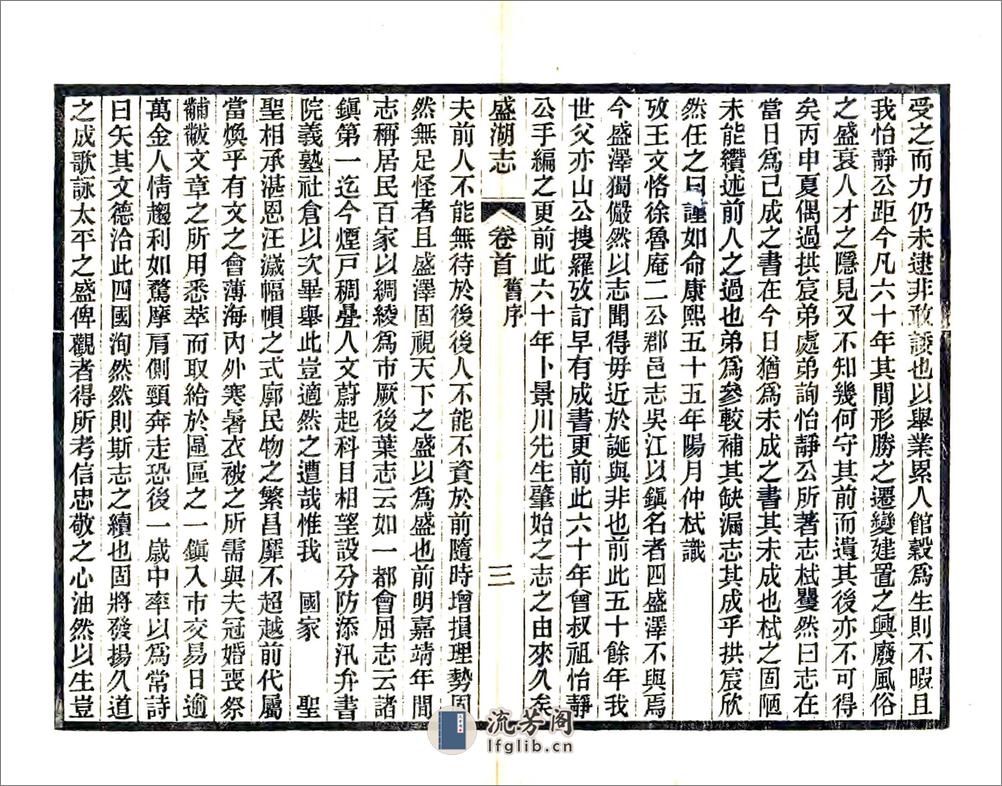 受之而力仍未逮非敢諉也以舉業累人館穀爲生則不暇且
我怡靜公距今凡六十年其間形勝之遷變建置之興廢風俗
之盛衰人才之隱見又不知幾何守其前而遺其後亦不可得
矣丙申夏偶過拱宸弟處弟詢怡靜公所著志栻矍然曰志在
當日爲已成之書在今日猶爲未成之書其未成也栻之固陋
未能纘述前人之過也弟爲參較補其缺漏志其成乎拱宸欣
然任之曰謹如命康熙五十五年陽月仲栻識
攷王文恪徐魯庵二公郡邑志吳江以鎭名者四盛澤不與焉
今盛澤獨儼然以志聞得毋近於誕與非也前此五十餘年我
世父亦山公搜羅攷訂早有成書更前此六十年曾叔祖怡靜
公手編之更前此六十年卜景川先生肇始之志之由來久矣
盛湖志 卷首 舊序 三
夫前人不能無待於後後人不能不資於前隨時增損理勢固
然無足怪者且盛澤固視天下之盛以爲盛也前明嘉靖年間
志稱居民百家以綢綾爲市厥後葉志云如一都會屈志云諸
鎭第一迄今煙戸稠疊人文蔚起科目相望設分防添汛弁書
院義塾社倉以次畢舉此豈適然之遭哉惟我 國家 聖
聖相承湛恩汪濊幅幀之式廓民物之繁昌靡不超越前代屬
當煥乎有文之會薄海內外寒暑衣被之所需與夫冠婚喪祭
黼黻文章之所用悉萃而取給於區區之一鎭入市交易日逾
萬金人情趨利如鶩摩肩側頸奔走恐後一歲中率以爲常詩
曰矢其文德洽此四國洵然然則斯志之續也固將發揚久道
之成歌詠太平之盛俾觀者得所考信忠敬之心油然以生豈
流芳阁
lfglib.cn